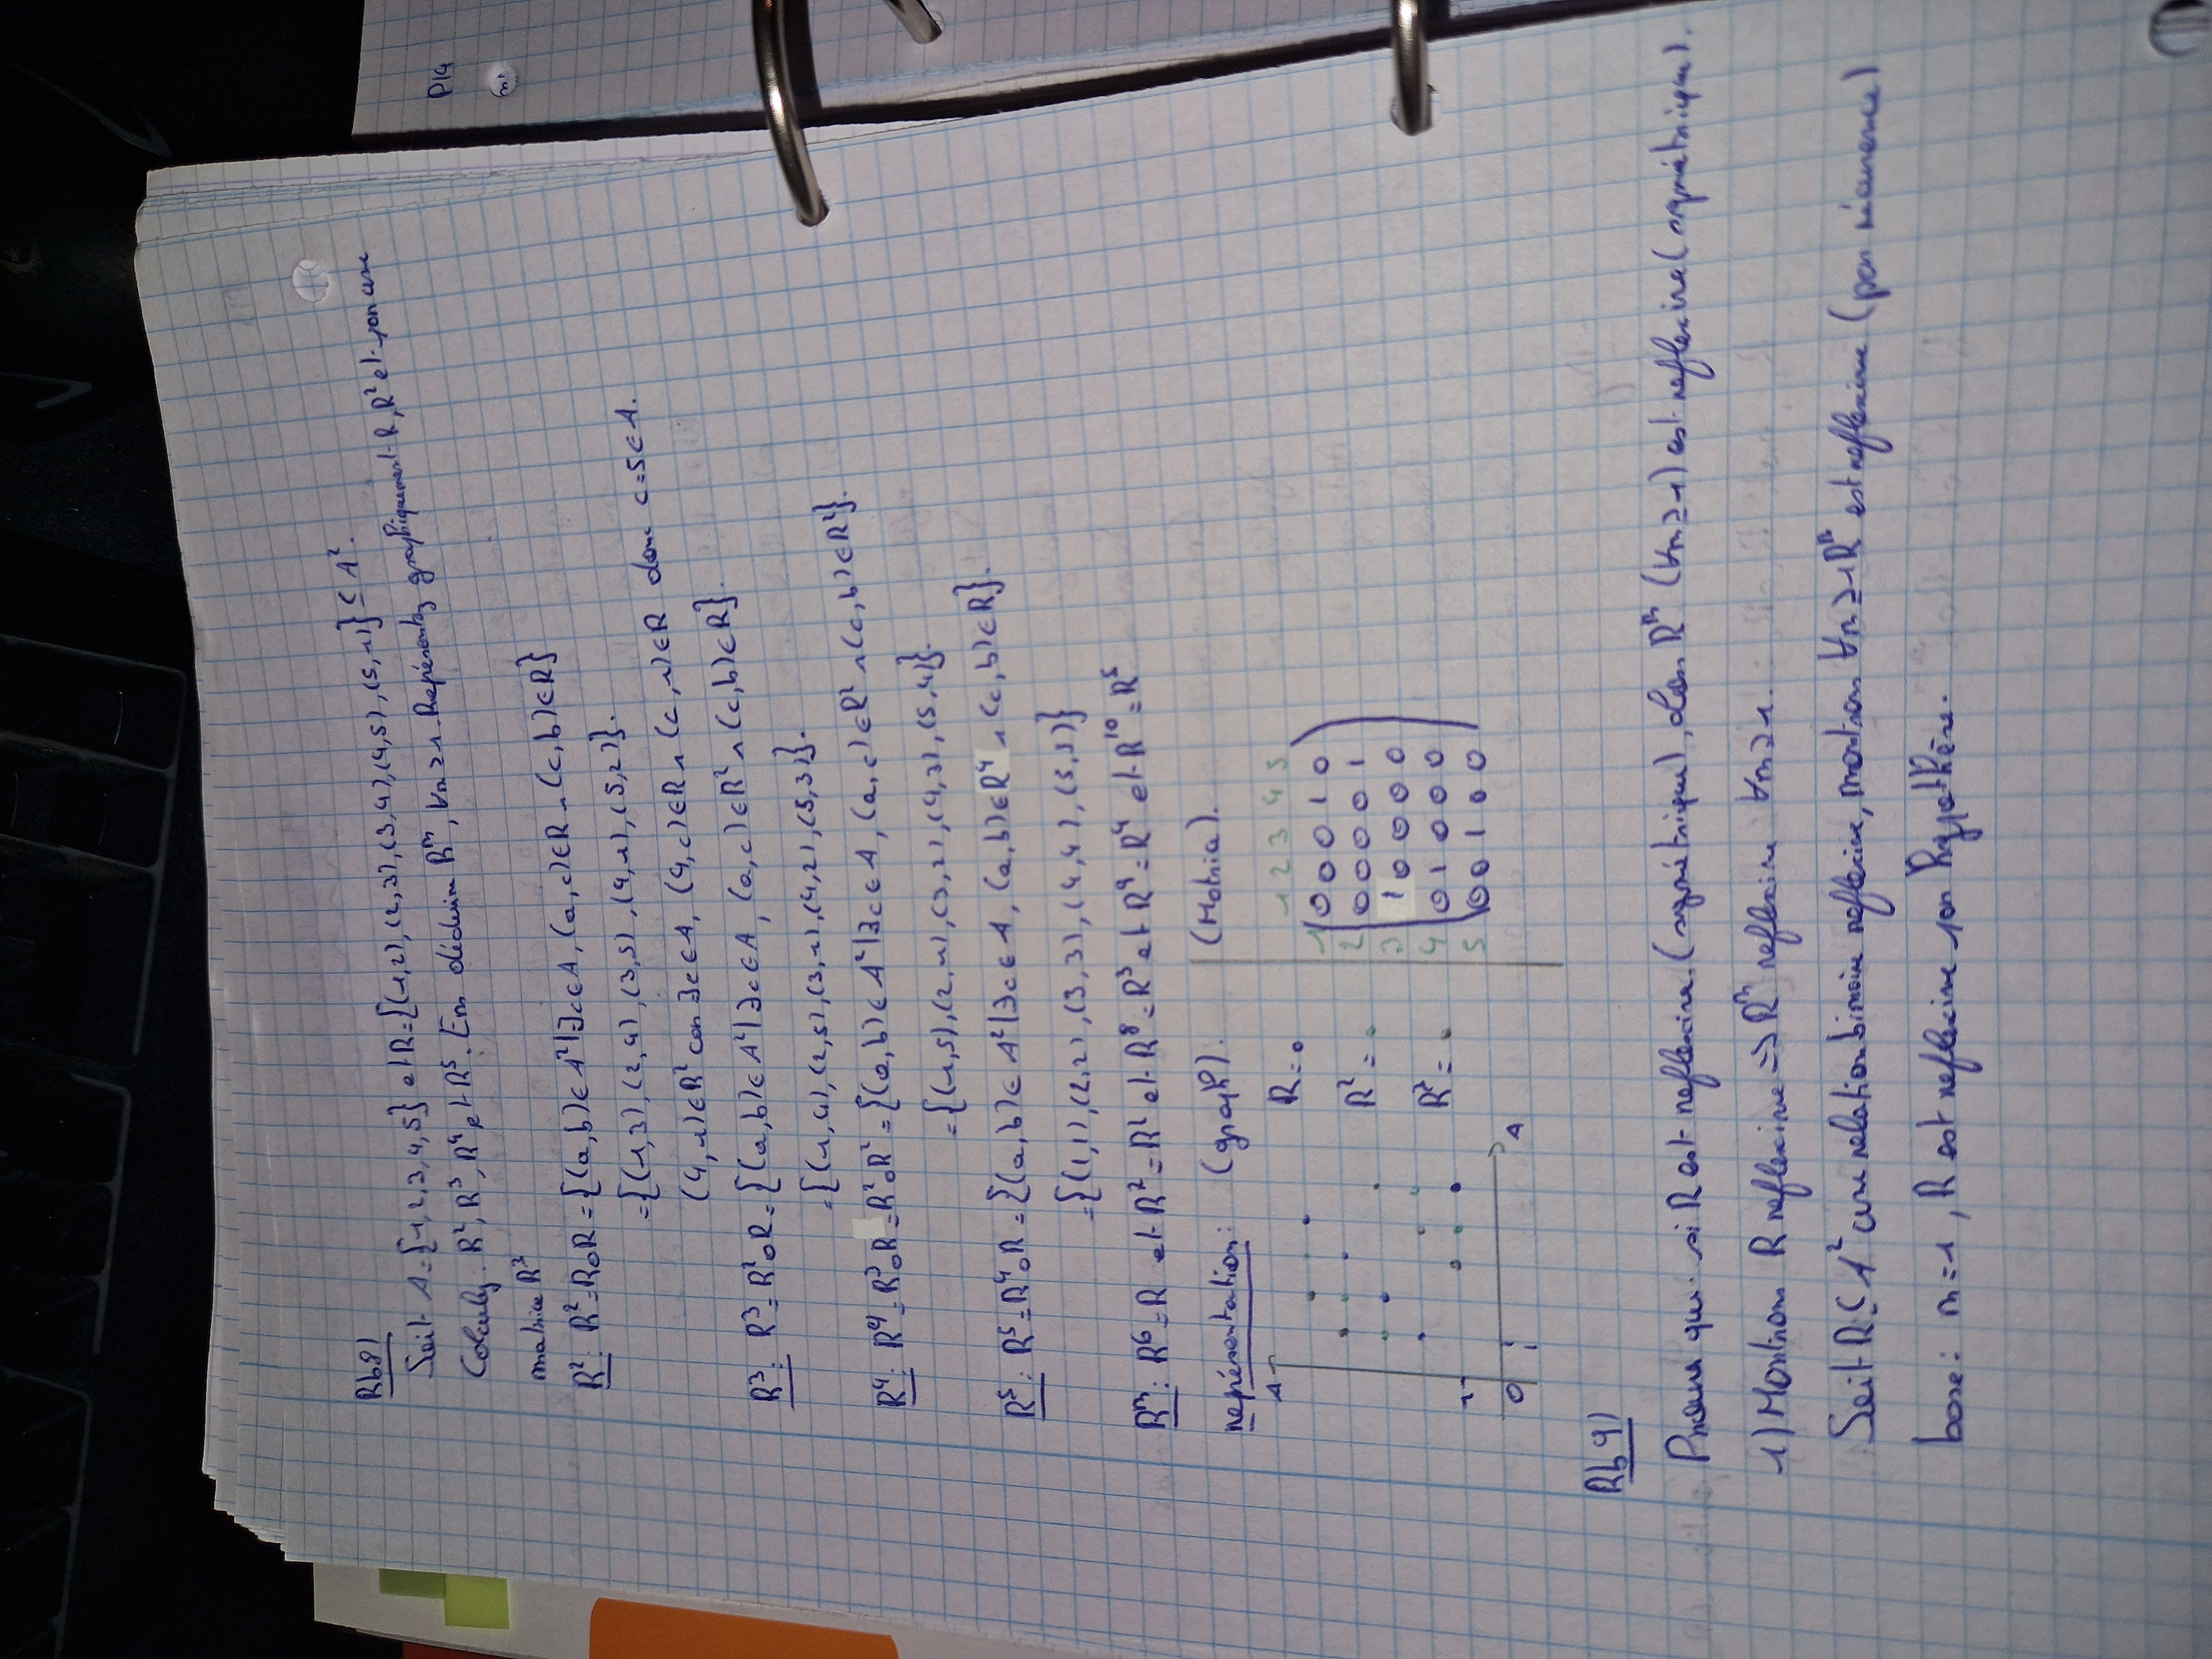 Rb8)
Soit A={1,2,3,4,5} et R={(1,2),(2,3),(3,4),(4,5),(5,1)} ⊆ A².
Calculez R², R³, R⁴ et R⁵. En déduire Rⁿ, ∀n≥1. Représentez graphiquement R, R² et par une
matrice R³
R²: R²=R∘R={(a,b)∈A²|∃c∈A, (a,c)∈R ∧ (c,b)∈R}
={(1,3),(2,4),(3,5),(4,1),(5,2)}.
(4,1)∈R² car ∃c∈A, (4,c)∈R ∧ (c,1)∈R donc c=5∈A.
R³: R³=R²∘R={(a,b)∈A²|∃c∈A, (a,c)∈R² ∧ (c,b)∈R}.
={(1,4),(2,5),(3,1),(4,2),(5,3)}.
R⁴: R⁴=R³∘R=R²∘R²={(a,b)∈A²|∃c∈A, (a,c)∈R² ∧ (c,b)∈R²}.
={(1,5),(2,1),(3,2),(4,3),(5,4)}.
R⁵: R⁵=R⁴∘R={(a,b)∈A²|∃c∈A, (a,b)∈R⁴ ∧ (c,b)∈R}.
={(1,1),(2,2),(3,3),(4,4),(5,5)}
Rⁿ: R⁶=R et R⁷=R² et R⁸=R³ et R⁹=R⁴ et R¹⁰=R⁵
représentation: (graph). (Matrice).
A
R=
R²=
R³=
1
0 1 A
1 2 3 4 5
1 0 0 0 1 0
2 0 0 0 0 1
3 1 0 0 0 0
4 0 1 0 0 0
5 0 0 1 0 0
Rb9)
Prouver que si R est reflexive (symétrique), alors Rⁿ (∀n≥1) est reflexive (symétrique).
1) Montrons R reflexive => Rⁿ reflexive ∀n≥1.
Soit R⊆A² une relation binaire reflexive, montrons ∀n≥1 Rⁿ est reflexive (par récurrence)
base: n=1, R est reflexive par hypothèse.
P14